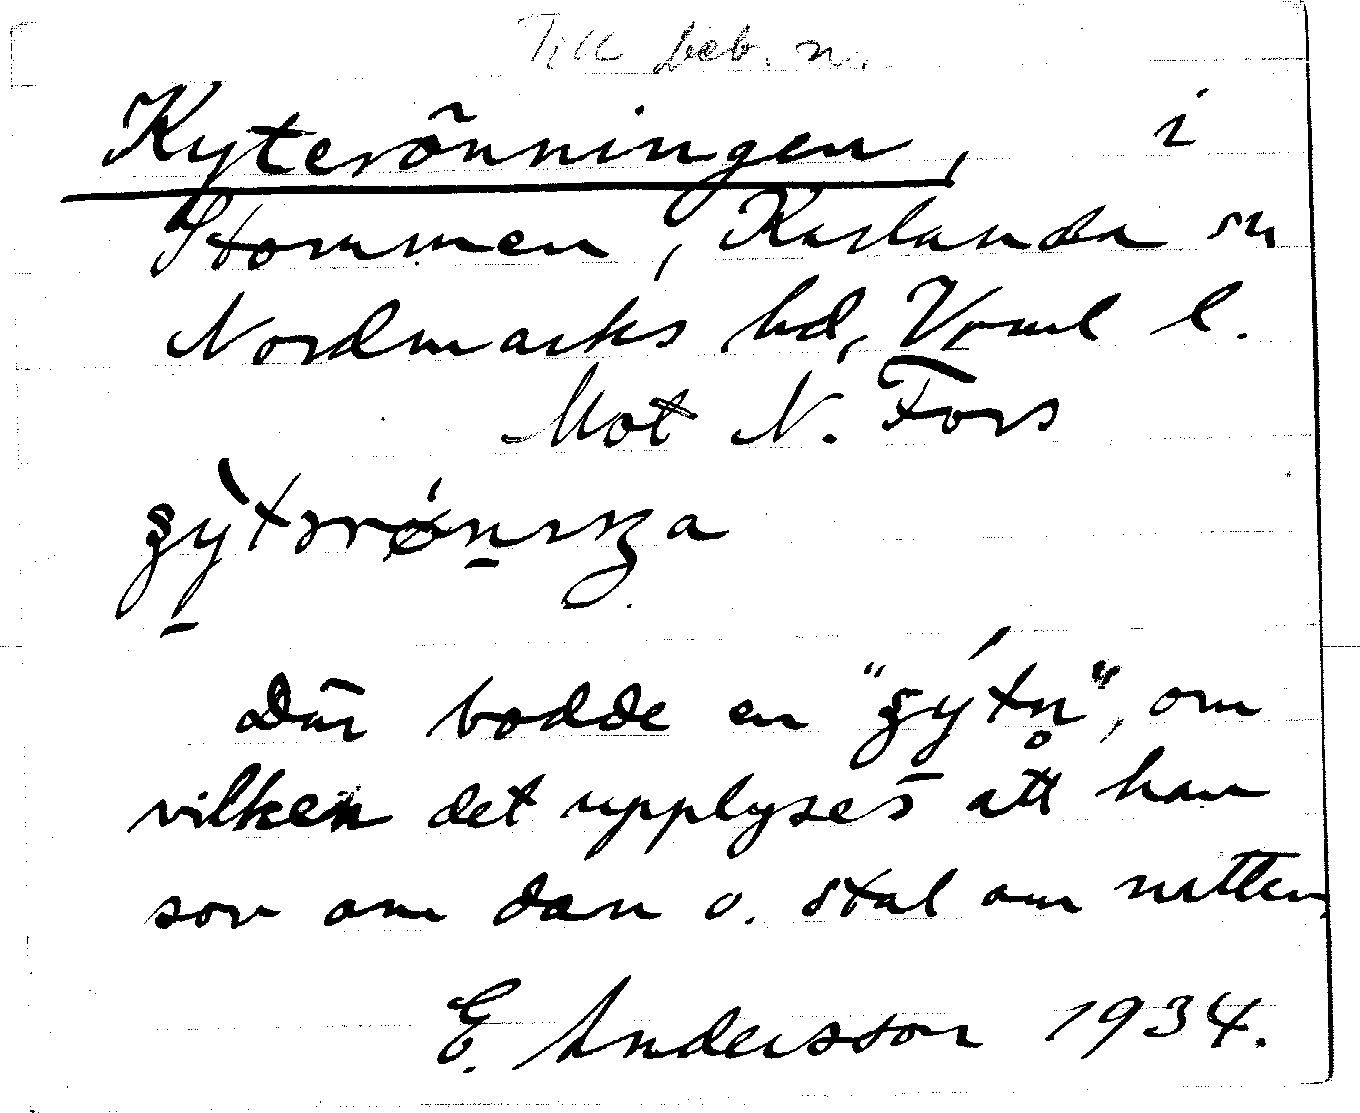 Till beb. n.
Kyterönningen, i
Stommen, Karlanda sn
Nordmarks hd, Vrml l.
Mot N. Fors
Där bodde en " ", om
vilken det upplyses att han
sov om dan o. stal om natten
E. Andersson 1934.